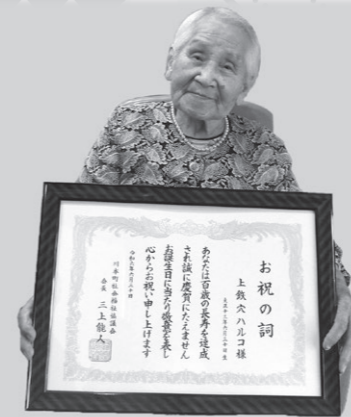 お祝の詞
上鉄穴ハルコ様
あなたは百歳の長寿を達成
され誠に慶賀にたえません
お誕生日に当たり微意を表し
心からお祝い申し上げます
川本町社会福祉協議会
会長 三上